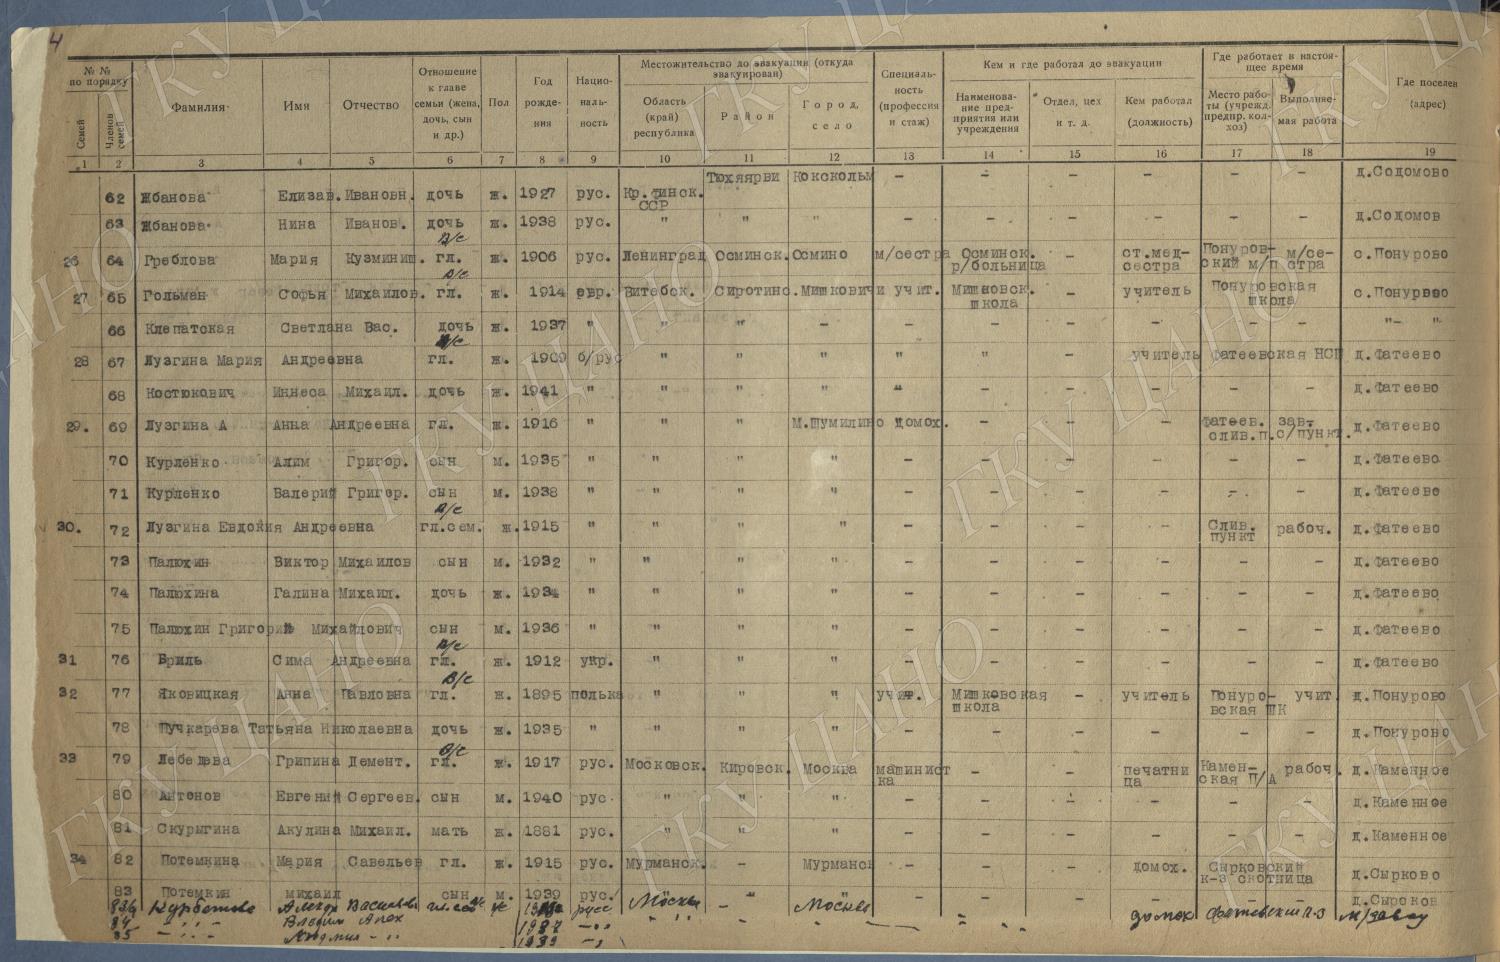 4
№ № по порядку | Фамилия | Имя | Отчество | Отношение к главе семьи (жена, дочь, сын и др.) | Пол | Год рождения | Национальность | Местожительство до эвакуации (откуда эвакуирован) | Специальность (профессия и стаж) | Кем и где работал до эвакуации | Где работает в настоящее время | Где поселен (адрес)
Семей | Членов семей | Область (край) республика | Район | Город, село | Наименование предприятия или учреждения | Отдел, цех и т. д. | Кем работал (должность) | Место работы (учрежд. предпр. колхоз) | Выполняемая работа
1 2 3 4 5 6 7 8 9 10 11 12 13 14 15 16 17 18 19
62 Жбанова Елизав. Ивановн. дочь ж. 1927 рус. Кр.финск. ССР Тюхяярви Кокскольм – – – – – – д.Содомово
63 Жбанова Нина Иванов. дочь ж. 1938 рус. " " " – – – – – – д.Содомов
26 64 Греблова Мария Кузминиш. гл. в/с ж. 1906 рус. Ленинград Осминск. Осмино м/сестра Осминск. р/больница – ст.медсестра Понуровский м/п м/сестра с.Понурово
27 65 Гольман Софья Михайлов. гл. в/с ж. 1914 евр. Витебск. Сиротинс. Мишковичи учит. Мишковск. школа – учитель Понуровская школа с.Понурово
66 Клепатская Светлана Вас. дочь ж. 1937 " " " – – – – – – – "– "
28 67 Лузгина Мария Андреевна гл. в/с ж. 1909 б/рус " " " " " – учитель Фатеевская НСШ д.Фатеево
68 Костюкович Иннеса Михаил. дочь ж. 1941 " " " " " – – – – – д.Фатеево
29. 69 Лузгина А Анна Андреевна гл. ж. 1916 " " " М.Шумилино домох. – – – Фатеев. слив.п. зав. с/пункт. д.Фатеево
70 Курленко Алим Григор. сын м. 1935 " " " " – – – – – – д.Фатеево
71 Курленко Валерий Григор. сын м. 1938 " " " " – – – – – – д.Фатеево
30. 72 Лузгина Евдокия Андреевна гл.сем. в/с ж. 1915 " " " " – – – – Слив. пункт рабоч. д.Фатеево
73 Палюхин Виктор Михайлов сын м. 1932 " " " " – – – – – – д.Фатеево
74 Палюхина Галина Михаил. дочь ж. 1934 " " " " – – – – – – д.Фатеево
75 Палюхин Григорий Михайлович сын м. 1936 " " " " – – – – – – д.Фатеево
31 76 Бриль Сима Андреевна гл. в/с ж. 1912 укр. " " " – – – – – – д.Фатеево
32 77 Яковицкая Анна Павловна гл. в/с ж. 1895 полька " " " учит. Мишковская школа – учитель Понуровская ШК учит. д.Понурово
78 Пучкарева Татьяна Николаевна дочь ж. 1935 " " " " – – – – – – д.Понурово
33 79 Лебедева Грипина Демент. гл. в/с ж. 1917 рус. Московск. Кировск. Москва машинистка – – печатница Каменская П/А рабоч. д.Каменное
80 Антонов Евгений Сергеев. сын м. 1940 рус. " " " – – – – – – д.Каменное
81 Скурыгина Акулина Михаил. мать ж. 1881 рус. " " " – – – – – – д.Каменное
34 82 Потемкина Мария Савельев гл. ж. 1915 рус. Мурманск. – Мурманск – – – домох. Сырковский к-з скотница д.Сырково
83 Потемкин михаил сын м. 1939 рус. " " " – – – – – – д.Сырков
Василевн ж русс Москва – Москва домох
84 1932
85 Людмил 1939